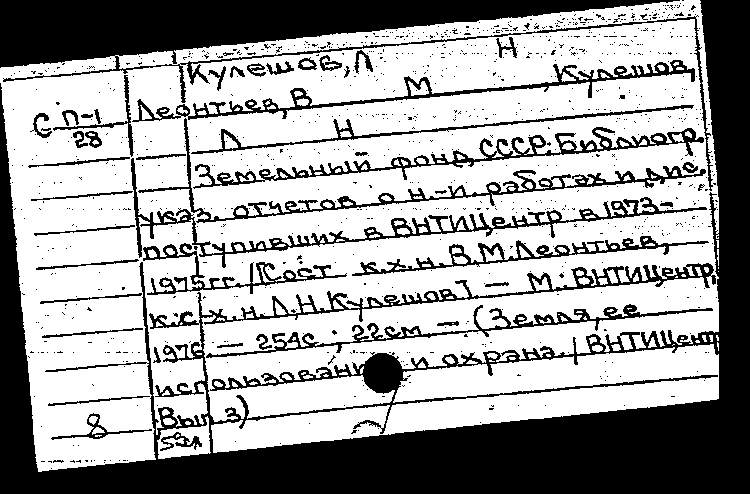 Кулешов, Л Н
Леонтьев, В М , Кулешов,
С П-1/28
Л Н
Земельный фонд СССР: Библиогр.
указ. отчетов о н.-и. работах и дис.
поступивших в ВНТИЦентр в 1973-
1975 гг. / [Сост к.х.н. В.М. Леонтьев,
к.с-х.н. Л.Н. Кулешов] — М.: ВНТИЦентр,
1976. — 254с ; 22см — (Земля, ее
использование и охрана. / ВНТИЦентр
Вып 3)
8